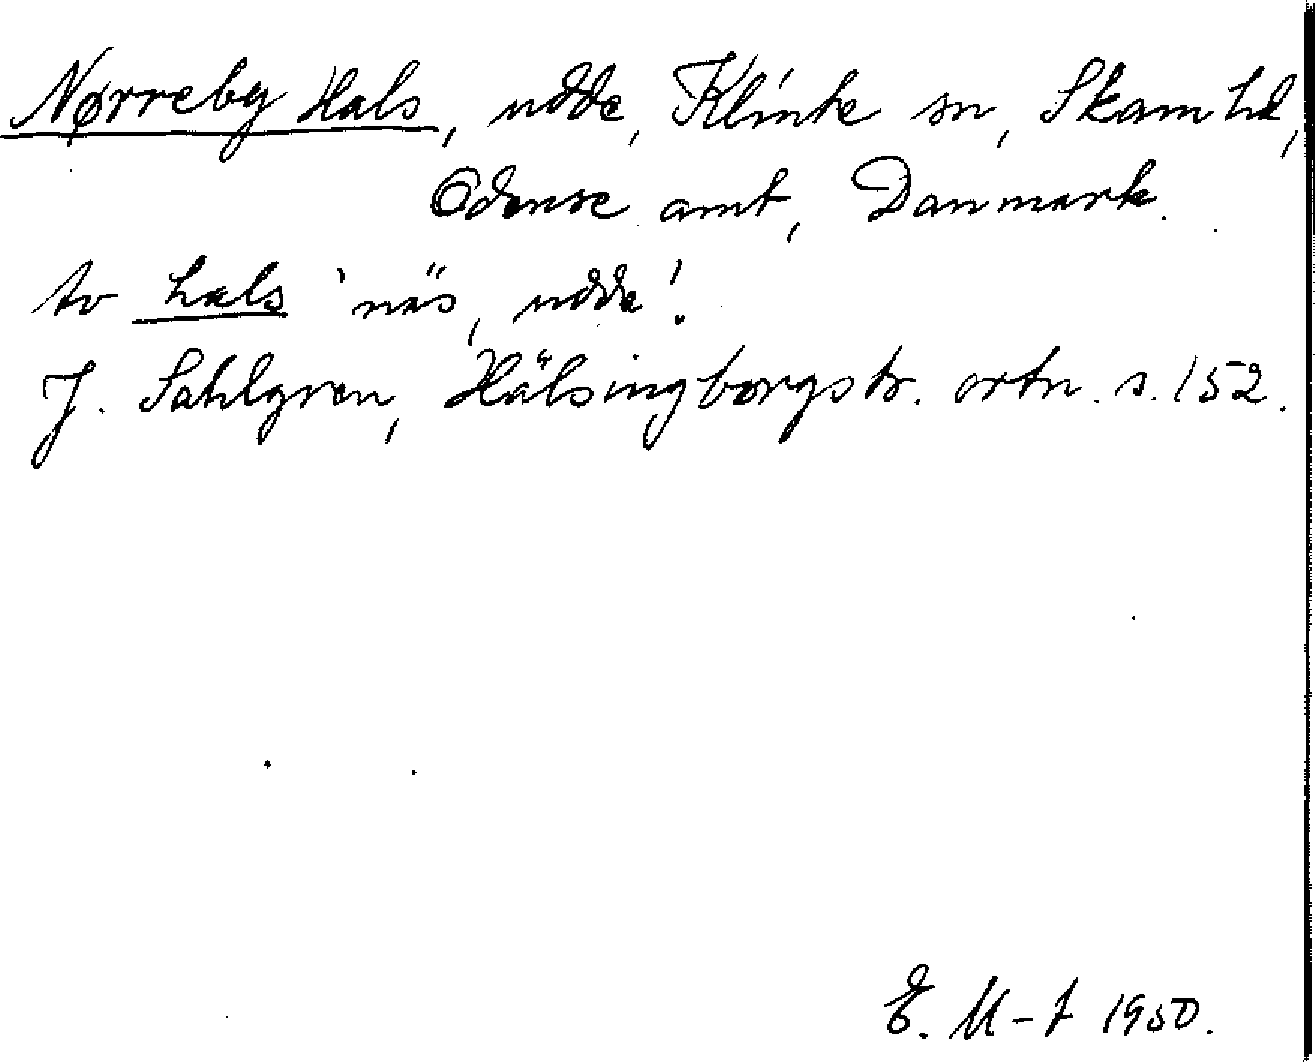 Nørreby Hals, udde, Klinte sn, Skam hd,
Odense amt, Danmark.
Av hals 'näs, udde'.
J. Sahlgren, Hälsingborgstr. ortn. s. 152.
E. M-f 1950.